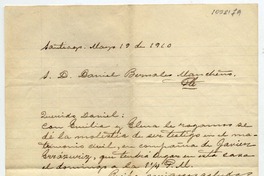 Santiago, Mayo 19 de 1910
S. D. Daniel Bernales Mancheño
Querido Daniel:
Con Emilia y Elena le rogamos se
dé la molestia de ser testigo en el ma-
trimonio civil, en compañía de Javier
Errázuriz, que tendrá lugar en esta casa
el domingo a la 1¼ P.M.